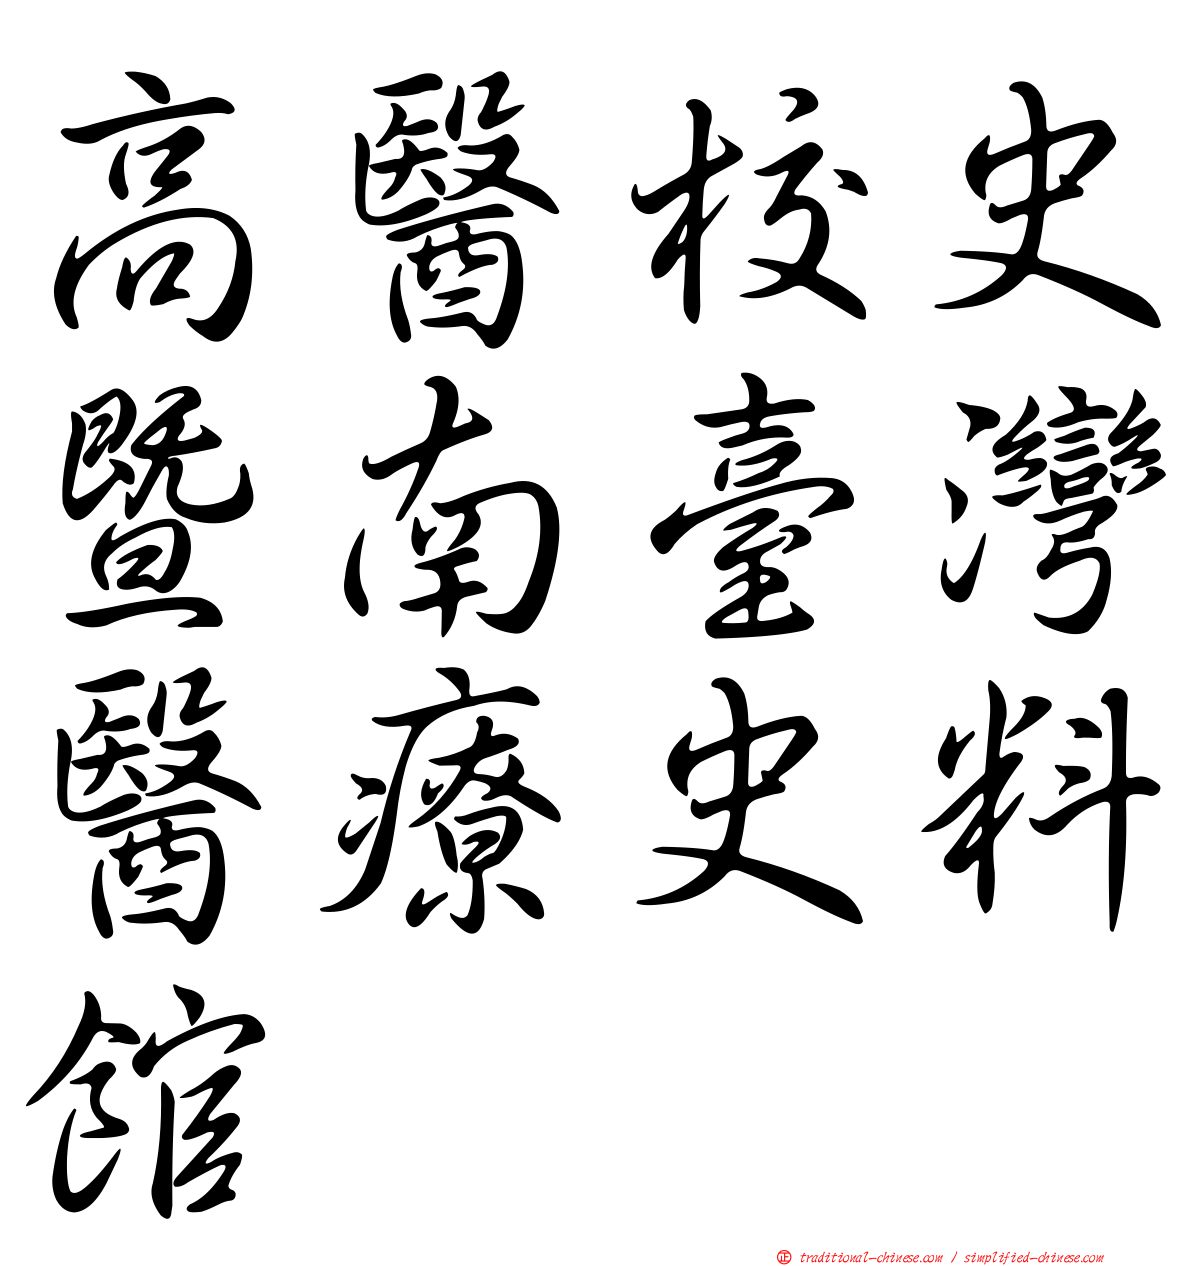 高醫校史
暨南臺灣
醫療史料
館
正 traditional-chinese.com / simplified-chinese.com